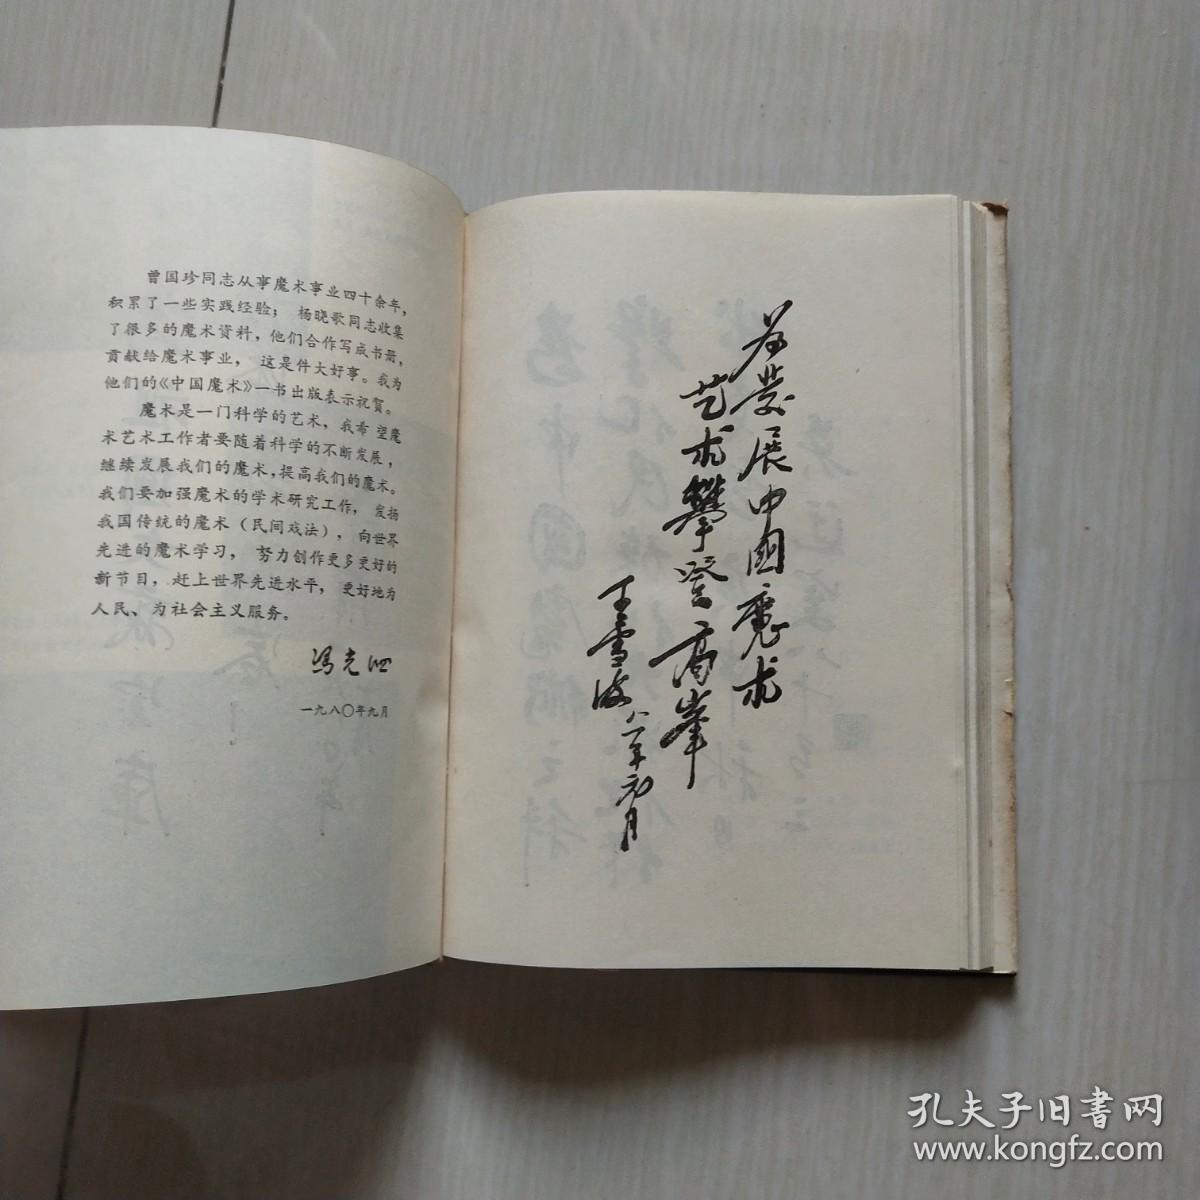 曾国珍同志从事魔术事业四十余年，
积累了一些实践经验； 杨晓歌同志收集
了很多的魔术资料，他们合作写成书册，
贡献给魔术事业， 这是件大好事。我为
他们的《中国魔术》一书出版表示祝賀。
魔术是一门科学的艺术，我希望魔
术艺术工作者要随着科学的不断发展，
继续发展我们的魔术，提高我们的魔术。
我们要加强魔术的学术研究工作， 发扬
我国传统的魔术（民间戏法）， 向世界
先进的魔术学习， 努力创作更多更好的
新节目，赶上世界先进水平， 更好地为
人民、为社会主义服务。
冯光泗
一九八〇年九月
为发展中國魔术
艺术攀登高峯
王雪波
八一年元月
孔夫子旧书网
www.kongfz.com